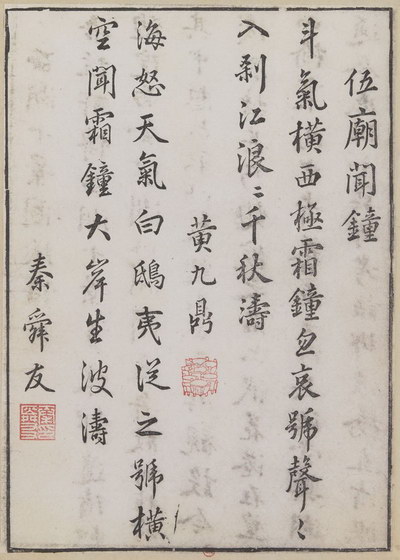 伍廟聞鐘
斗氣橫西極霜鐘忽哀號聲〻
入剡江浪〻千秋濤
黃九鼎
海怒天氣白鴟夷從之號橫
空聞霜鐘大岸生波濤
秦舜友